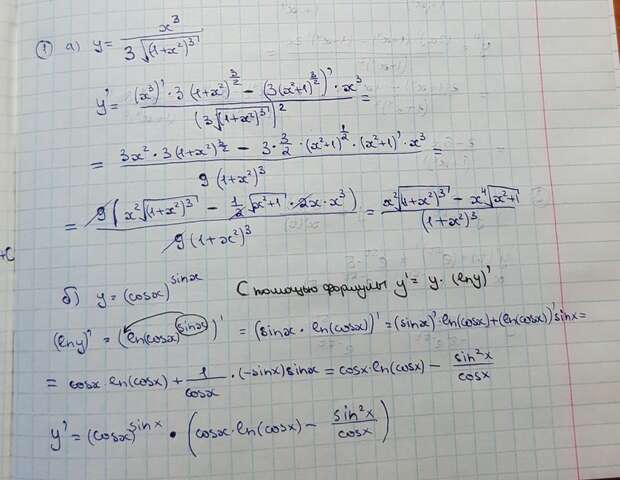 ① а) y = x³ / 3√(1+x²)³
y' = ((x³)' · 3(1+x²)^(3/2) − (3(x²+1)^(3/2))' · x³) / (3√(1+x²)³)² =
= (3x² · 3(1+x²)^(3/2) − 3 · 3/2 · (x²+1)^(1/2) · (x²+1)' · x³) / 9(1+x²)³ =
= 9(x²√(1+x²)³ − 1/2 √(x²+1) · 2x · x³) / 9(1+x²)³ = (x²√(1+x²)³ − x⁴√(x²+1)) / (1+x²)³
+C
б) y = (cosx)^(sinx) С помощью формулы y' = y · (ln y)'
(ln y)' = (ln(cosx)^(sinx))' = (sinx · ln(cosx))' = (sinx)' · ln(cosx) + (ln(cosx))' sinx =
= cosx · ln(cosx) + 1/cosx · (−sinx) sinx = cosx · ln(cosx) − sin²x/cosx
y' = (cosx)^(sinx) · (cosx · ln(cosx) − sin²x/cosx)